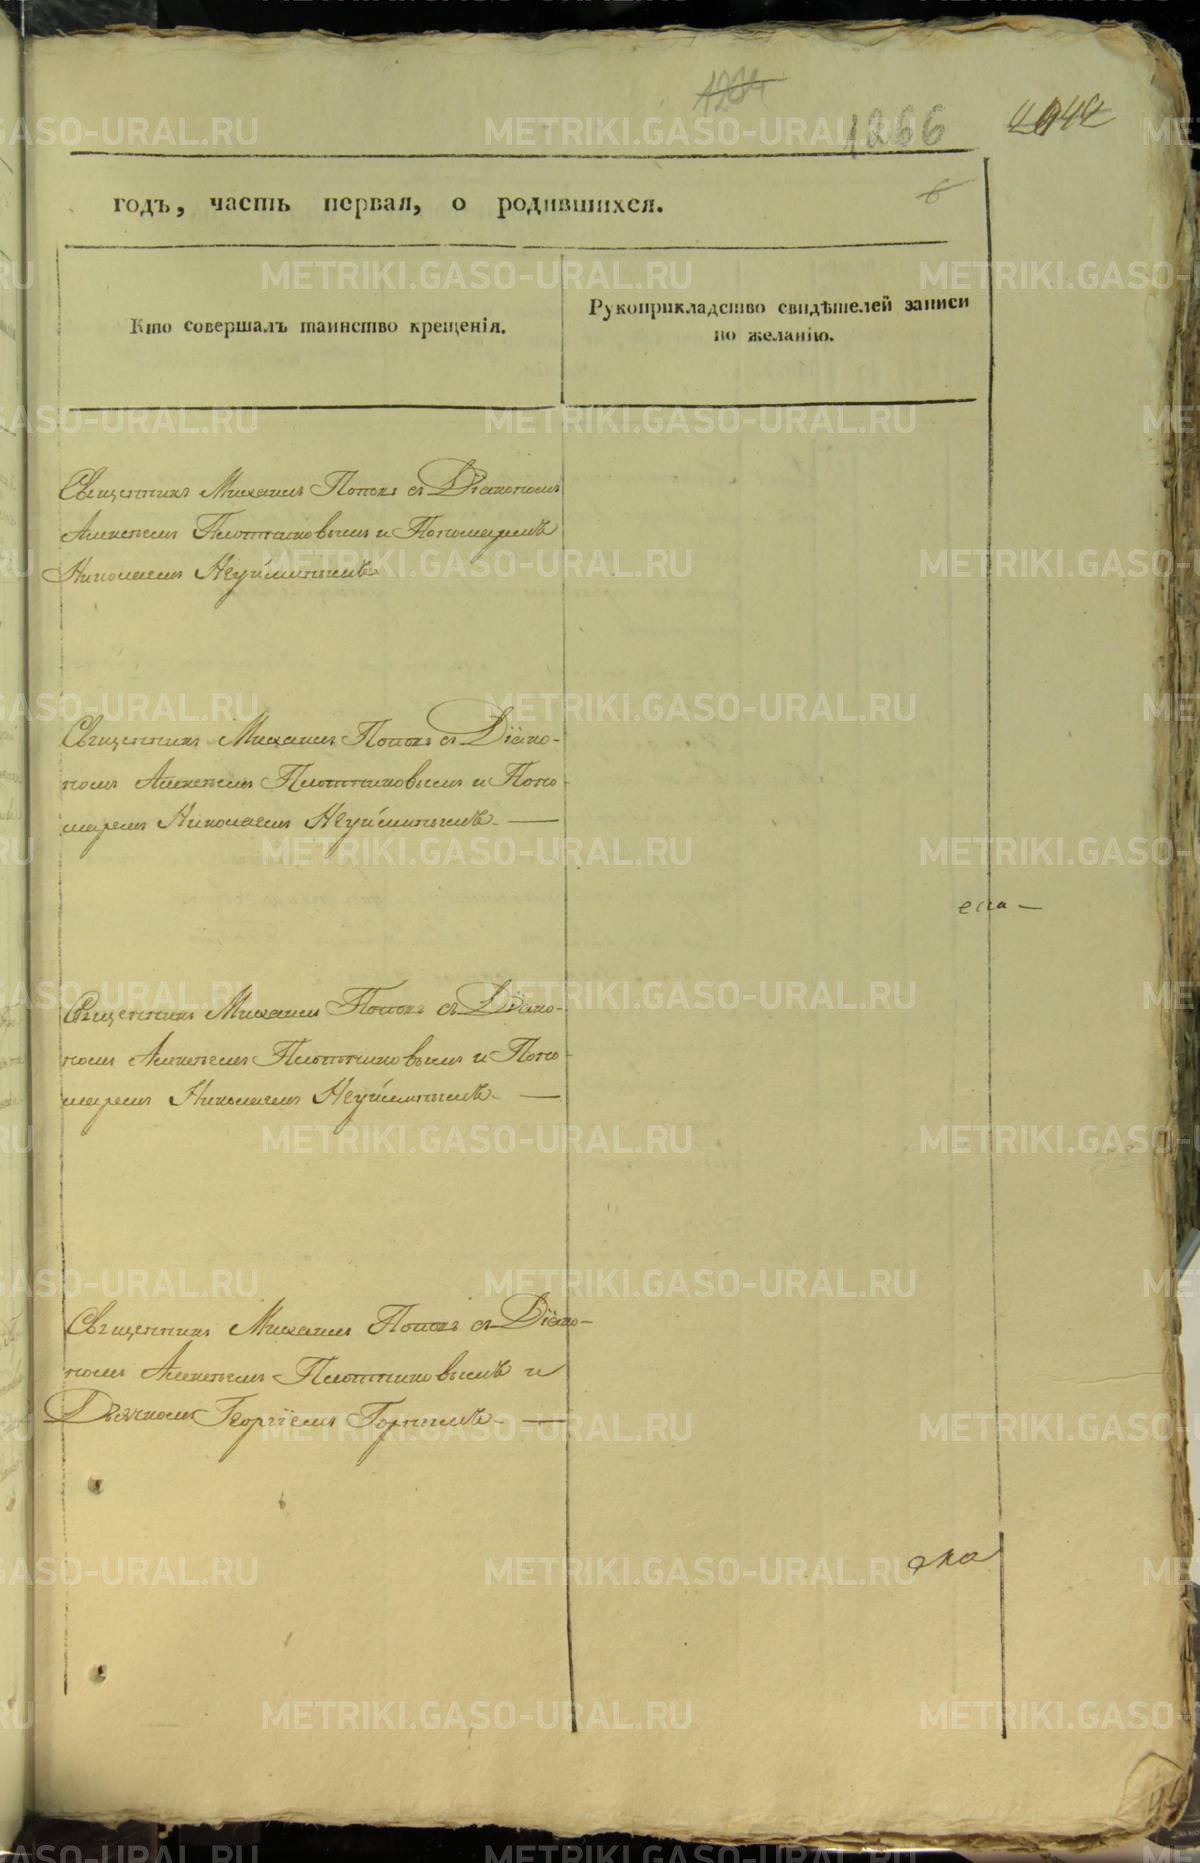 1204
1266
годъ, часть первая, о родившихся.
Кто совершалъ таинство крещенія.
Рукоприкладство свидѣтелей записи
по желанію.
Священникъ Михаилъ Поповъ съ Діакономъ
Алексѣемъ Плотниковымъ и Пономаремъ
Николаемъ Неуйминымъ
Священникъ Михаилъ Поповъ съ Діако-
номъ Алексѣемъ Плотниковымъ и Поно-
маремъ Николаемъ Неуйминымъ. —
Священникъ Михаилъ Поповъ съ Діако-
номъ Алексѣемъ Плотниковымъ и Поно-
маремъ Николаемъ Неуйминымъ. —
Священникъ Михаилъ Поповъ съ Діако-
номъ Алексѣемъ Плотниковымъ и
Дьячкомъ Георгіемъ Горнымъ. —
METRIKI.GASO-URAL.RU